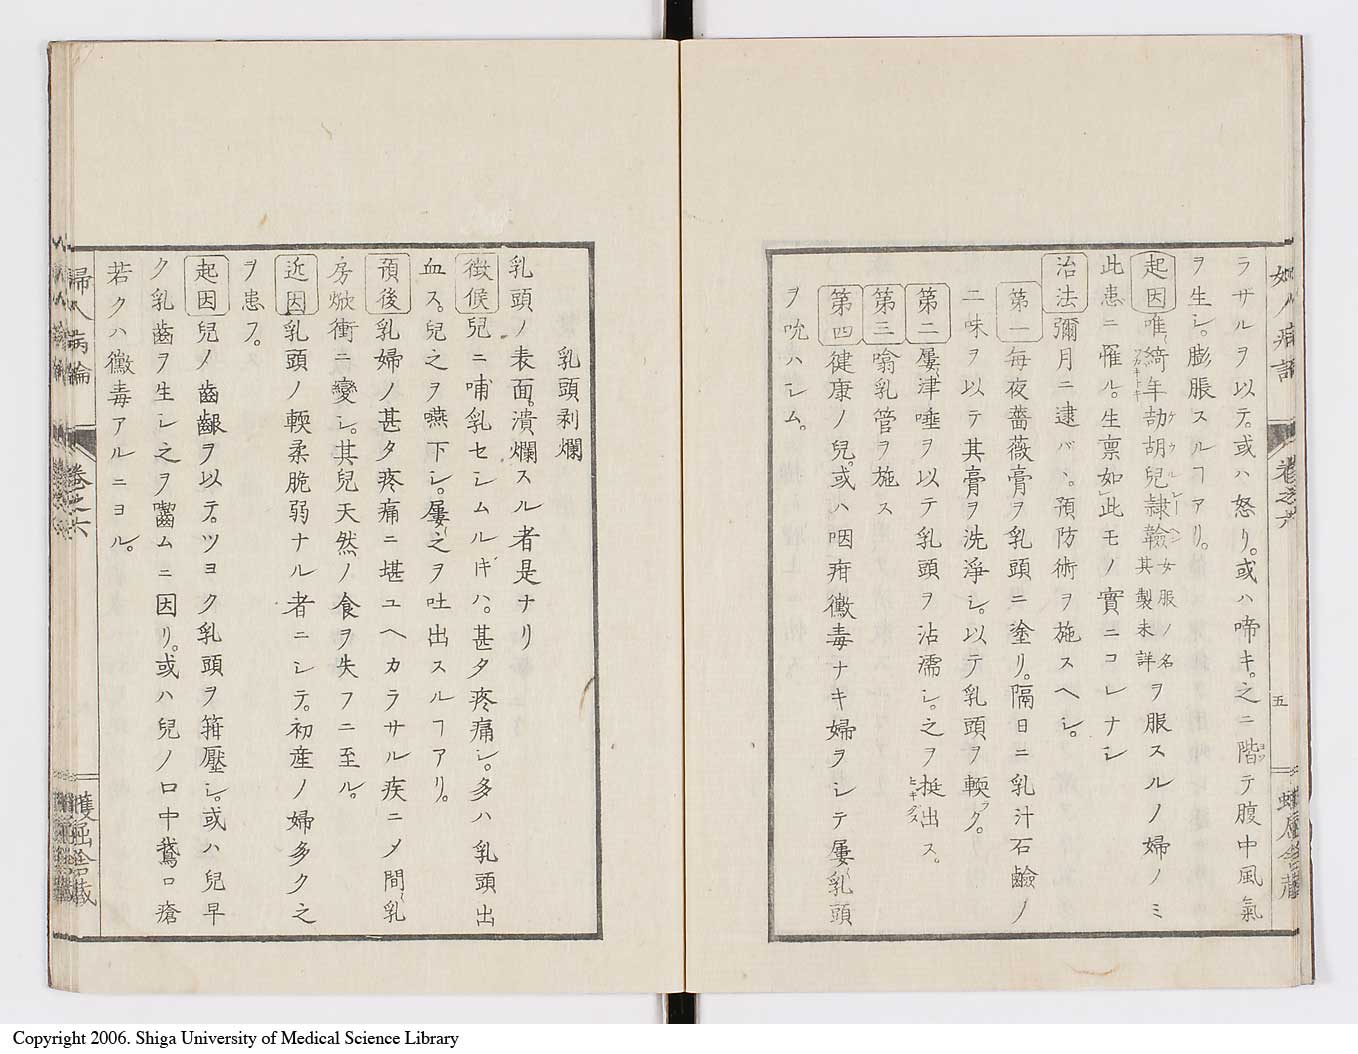 ラザルヲ以テ。或ハ怒リ。或ハ啼キ。之ニ階テ腹中風氣
ヲ生シ。膨脹スルヿアリ。
起因 唯綺年劼胡兒隷韰女服ノ名其製未詳ヲ服スルノ婦ノミ
此患ニ罹ル。生禀如此モノ實ニコレナシ
治法 彌月ニ逮バヽ。預防術ヲ施スヘシ。
第一 每夜薔薇膏ヲ乳頭ニ塗リ。隔日ニ乳汁石鹼ノ
二味ヲ以テ其膏ヲ洗淨シ。以テ乳頭ヲ輭ラグ。
第二 屢津唾ヲ以テ乳頭ヲ沾濡シ。之ヲ挺出ス。
第三 噏乳管ヲ施ス
第四 健康ノ兒。或ハ咽疳黴毒ナキ婦ヲシテ屢乳頭
ヲ吮ハシム。
五
乳頭剥爛
乳頭ノ表面。潰爛スル者是ナリ
徴候 兒ニ哺乳セシムル𪜈ハ。甚タ疼痛シ。多ハ乳頭出
血ス。兒之ヲ嚥下シ。屢之ヲ吐出スルヿアリ。
預後 乳婦ノ甚タ疼痛ニ堪ユヘカラサル疾ニメ間乳
房焮衝ニ變シ。其兒天然ノ食ヲ失フニ至ル。
近因 乳頭ノ輭柔脆弱ナル者ニシテ。初産ノ婦多ク之
ヲ患フ。
起因 兒ノ齒齦ヲ以テ。ツヨク乳頭ヲ箝壓シ。或ハ兒早
ク乳齒ヲ生シ之ヲ嚙ムニ因リ。或ハ兒ノ口中鵞口瘡
若クハ黴毒アルニヨル。
婦人病論 卷之六
Copyright 2006. Shiga University of Medical Science Library